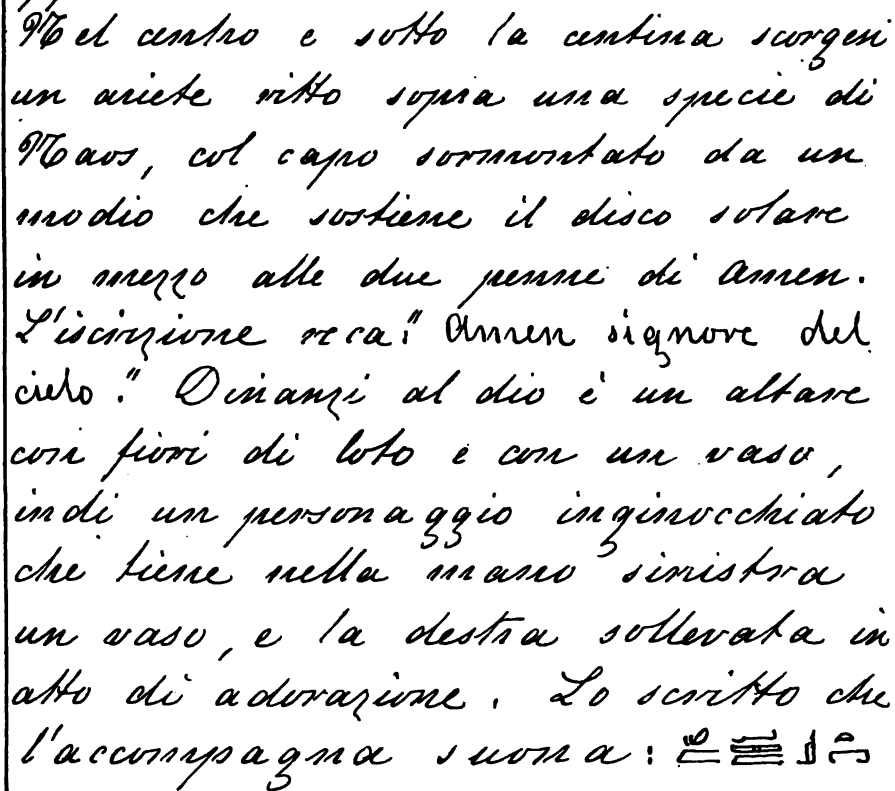 Nel centro e sotto la centina scorgesi
un ariete ritto sopra una specie di
Naos, col capo sormontato da un
modio che sostiene il disco solare
in mezzo alle due penne di Amen.
L'iscrizione reca: "Amen signore del
cielo." Dinanzi al dio è un altare
con fiori di loto e con un vaso,
indi un personaggio inginocchiato
che tiene nella mano sinistra
un vaso, e la destra sollevata in
atto di adorazione. Lo scritto che
l'accompagna suona: